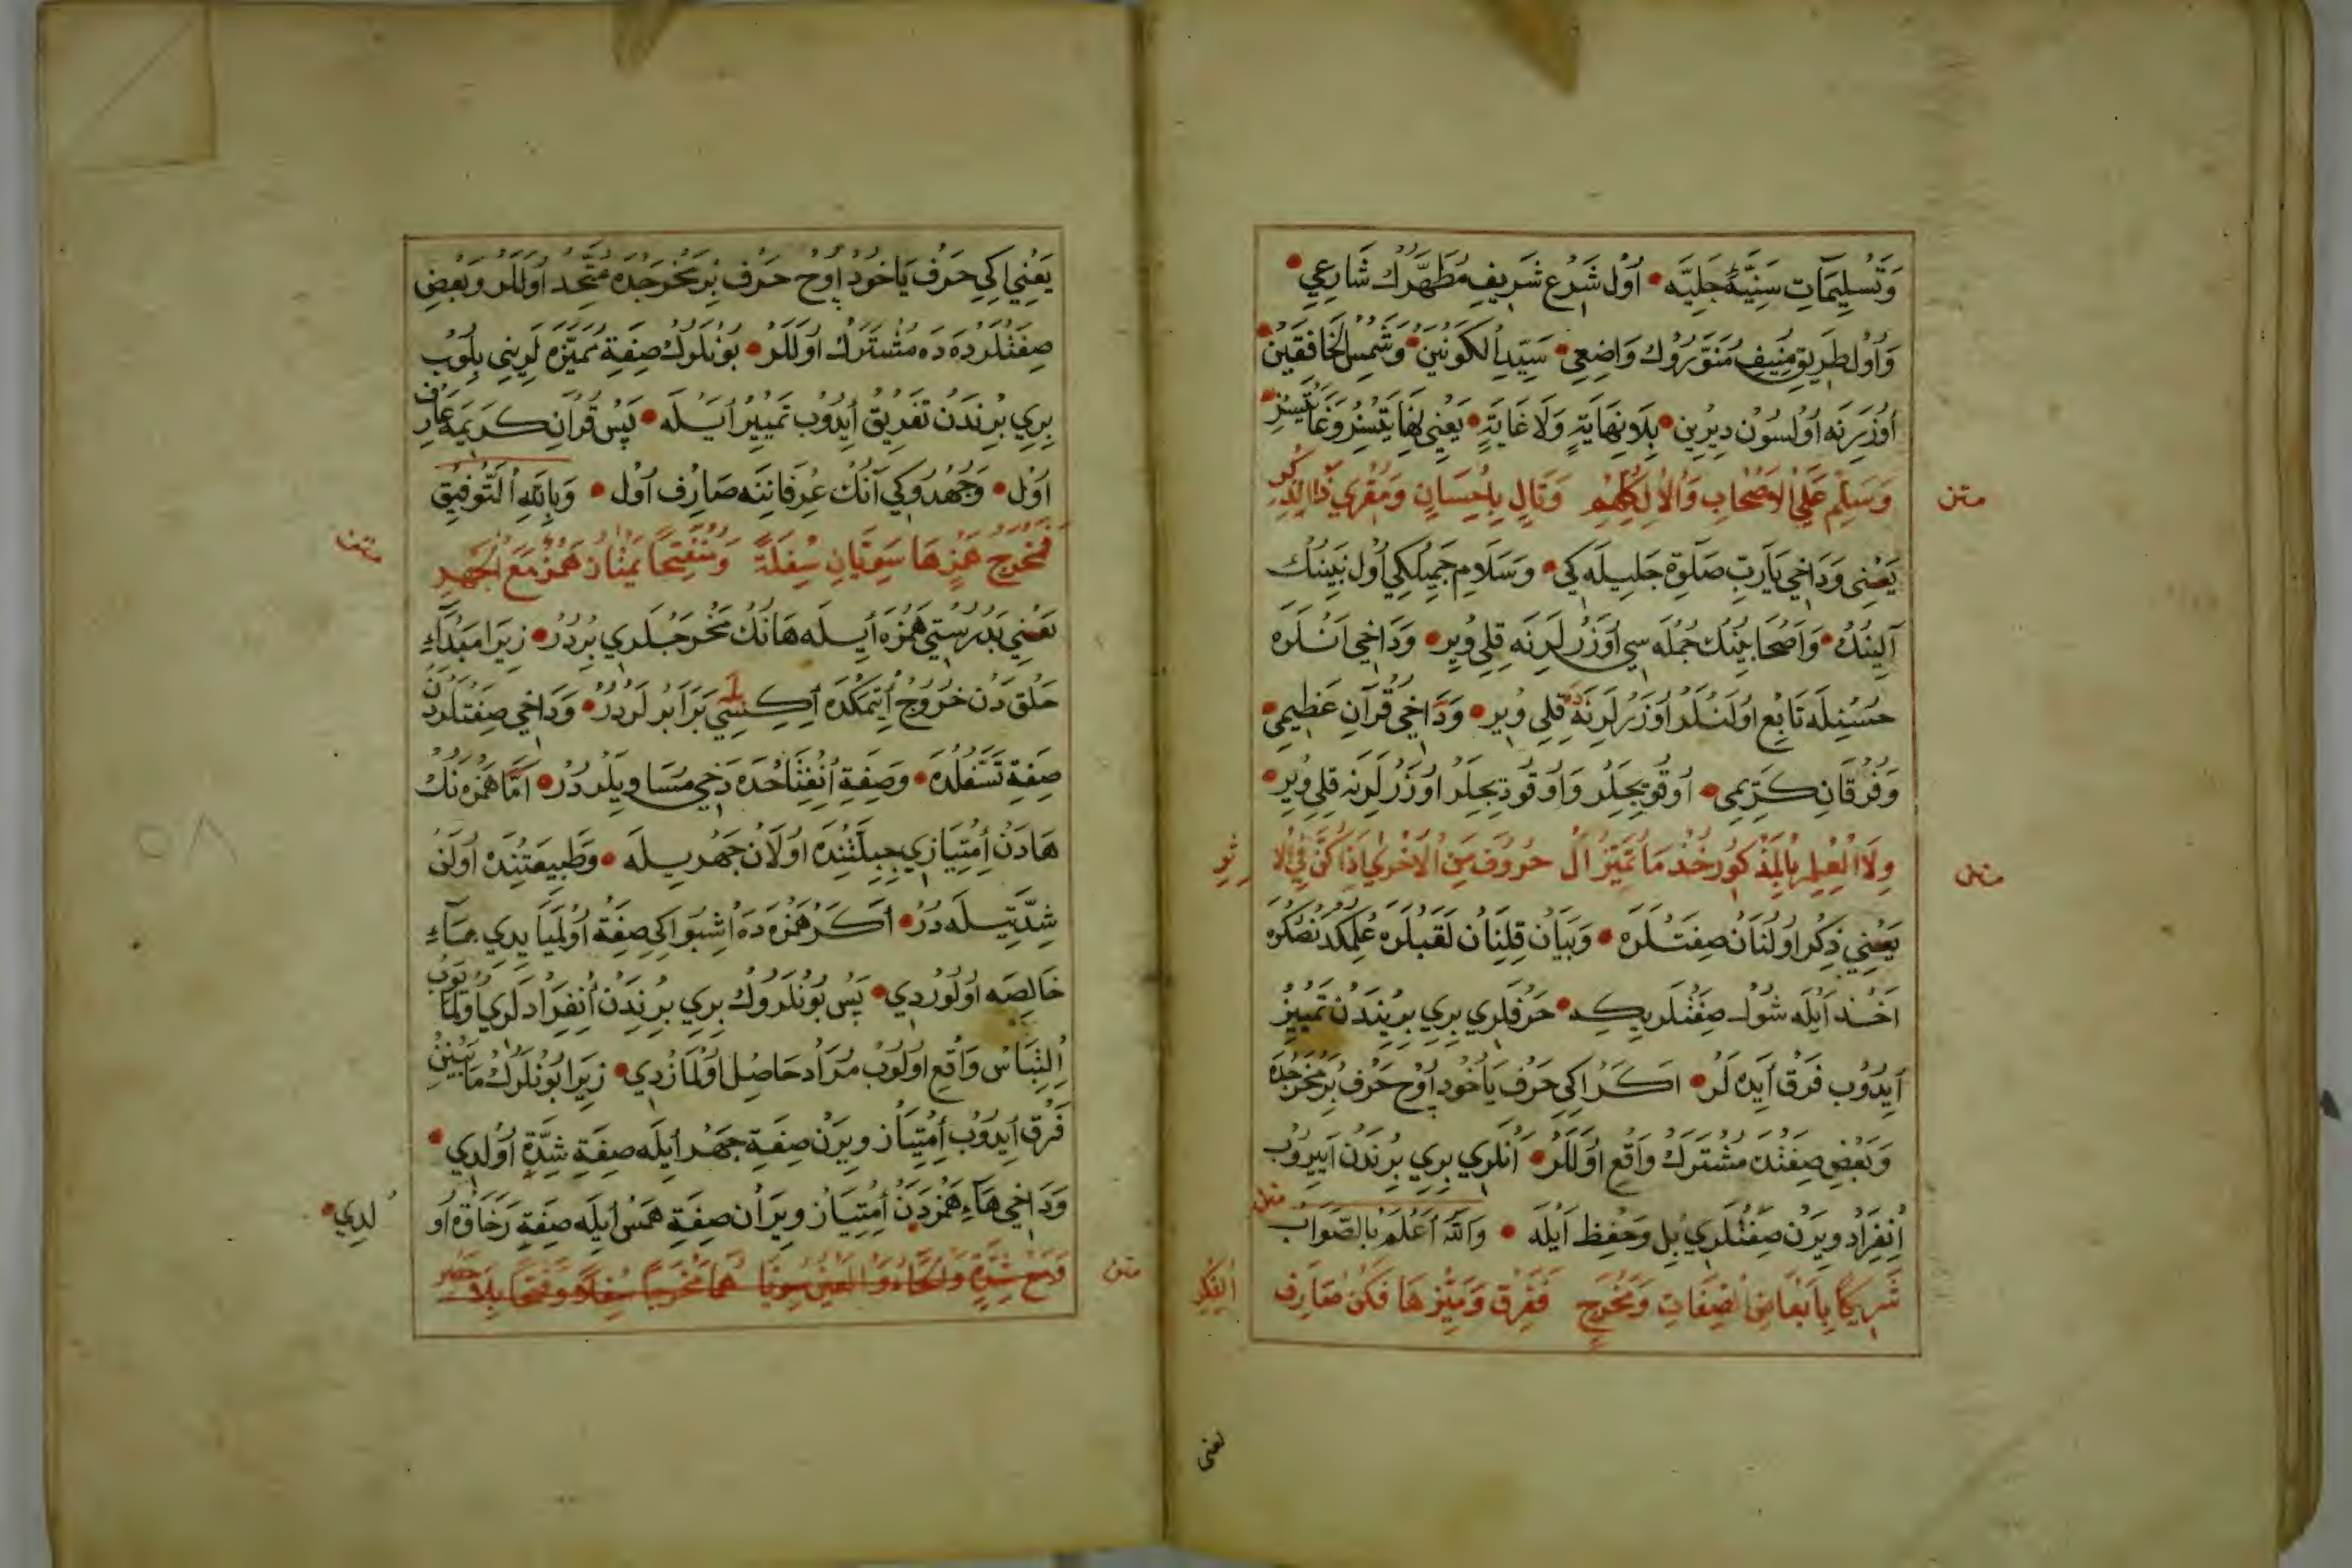 وَتَسْلِيمَاتِ سَنِيَّةٔ جَلِيَّه • اُول شَرْعِ شَرِيفِ مُطَهَّرُكْ شَارِعِي •
وَاُول طَرِيقِ مُنِيفِ مُنَوَّرُوكْ وَاضِعِي • سَيِّدِ الْكَوْنَيْنْ • وَشَمْسِ الْخَافِقَيْنْ •
اُوزَرِنَه اُولْسُونْ دِيرِينْ • بِلَا نِهَايَةٍ وَلَا غَايَةٍ • يَعْنِي نِهَايَتْسِزْ وَغَايَتْسِزْ •
متن
وَسَلِّمْ عَلَى الْاَصْحَابِ وَالْاٰلِ كُلِّهِمْ وَتَالٍ بِاِحْسَانٍ وَمُقْرِي ذَا الذِّكْرِ
يَعْنِي وَدَاخِي يَارَبِّ صَلٰوةِ جَلِيلَه كِي • وَسَلَامِ جَمِيلْكِي اُول نَبِينُكْ
اٰلِينُكْ • وَاَصْحَابِنُكْ جُمْلَه سِي اُوزَرْلَرِنَه قِلِي وِيرِ • وَدَاخِي اَنْلَرَه
حُسْنِلَه تَابِعْ اُولَنْلَرْ اُوزَرْلَرِنَه قِلِي وِيرِ • وَدَاخِي قُرْآنِ عَظِيمِي •
وَفُرْقَانِ كَرِيمِي • اُوقُويِجِلَرْ وَاُوقُودِيجِلَرْ اُوزَرْلَرِنَه قِلِي وِيرِ •
متن
وِلَا الْعِلْمِ بِالْمَذْكُورِ خُذْ مَا تَمَيَّزَ الْ حُرُوفُ مِنَ الْاُخْرٰي اِذَا كُنَّ فِي الْاِثْرِ
يَعْنِي ذِكْرْ اُولْنَانْ صِفَتْلَرَه • وَبَيَانْ قِلِنَانْ لَقَبْلَرَه عِلْمِكْدَنْ صُكْرَه
اَخْذْ اَيْلَه شُولْ صِفَتْلَرِيكِه • حَرْفْلَرِي بِرِي بِرِينْدَنْ تَمْيِيزْ
اَيْدُوبْ فَرْقْ اَيْدَه لَرْ • اَكَرْ اِكِي حَرْفْ يَاخُودْ اُوچْ حَرْفْ بِرْ مَخْرَجْدَه
وَبَعْضِ صِفَتْدَه مُشْتَرَكْ وَاقِعْ اُولَلَرْ • اَنْلَرِي بِرِي بِرِنْدَنْ اَيِيرُوبْ
اِنْفِرَادْ وِيرَنْ صِفَتْلَرِي بِلْ وَحِفْظْ اَيْلَه • وَاللّٰهُ اَعْلَمُ بِالصَّوَابْ
متن
شَرِيكًا بِاَبْعَاضِ الصِّفَاتِ وَمَخْرَجٍ فَفَرِّقْ وَمَيِّزْهَا فَكُنْ صَارِفَ الْفِكْرِ
يعنى
يَعْنِي اِكِي حَرْفْ يَاخُودْ اُوچْ حَرْفْ بِرْ مَخْرَجْدَه مُتَّحِدْ اُولَلَرْ وَبَعْضِ
صِفَتْلَرْدَه دَه مُشْتَرَكْ اُولَلَرْ • بُونْلَرُكْ صِفَةِ مُمَيِّزَه لَرِينِي بِلُوبْ
بِرِي بِرِنْدَنْ تَفْرِيقْ اَيْدُوبْ تَمْيِيزْ اَيْلَه • پَسْ قُرْآنِ كَرِيمَه عَارِفْ
اُولْ • وَجُهْدُوكِي اَنُكْ عِرْفَانِنَه صَارِفْ اُولْ • وَبِاللّٰهِ التَّوْفِيقْ
متن
فَمَخْرَجُ هَمْزٍ هَا سَوِيَّانِ سِفْلَةً وَمُنْفَتِحًا يَمْتَازُ هَمْزٌ مَعَ الْجَهْرِ
يَعْنِي بَدُرُسْتِي هَمْزَه اَيْلَه هَانُكْ مَخْرَجْلَرِي بِرْدُرْ • زِيرَا مَبْدَاءِ
حَلْقْدَنْ خُرُوجْ اِتْمَكْدَه اِكِيسِي بَرَابَرْلَرْدُرْ • وَدَاخِي صِفَتْلَرْدَنْ
صِفَةِ تَسَفُّلْدَه • وَصِفَةِ اِنْفِتَاحْدَه دَخِي مُسَاوِيلَرْدُرْ • اَمَّا هَمْزَه نُكْ
هَادَنْ اِمْتِيَازِي جِبِلَّتِنْدَه اُولَانْ جَهْرِيلَه • وَطَبِيعَتِنْدَه اُولَنْ
شِدَّتِيلَه دُرْ • اَكَرْ هَمْزَه دَه اِشْبُو اِكِي صِفَةْ اُولْمَيَايْدِي هَاءِ
خَالِصَه اُولُورْدِي • پَسْ بُونْلَرُوكْ بِرِي بِرِنْدَنْ اِنْفِرَادْلَرِي اُولْمَايُوبْ
اِلْتِبَاسْ وَاقِعْ اُولُوبْ مُرَادْ حَاصِلْ اُولْمَازْدِي • زِيرَا بُونْلَرُكْ مَابَيْنِنْ
فَرْقْ اَيْدُوبْ اِمْتِيَازْ وِيرَنْ صِفَةِ جَهْرْ اَيْلَه صِفَةِ شِدَّةْ اُولْدِي •
وَدَاخِي هَاءِ هَمْزَدَنْ اِمْتِيَازْ وِيرَانْ صِفَةِ هَمْسْ اَيْلَه صِفَةِ رَخَاوَةْ اُو
لدِي •
متن
وَمَعْ شِدَّةٍ وَالْحَاءُ وَالْعَيْنُ سُوِّيَا هُمَا مَخْرَجًا سِفْلًا وَفَتْحًا بِلَا حَصْرِ
٥٨